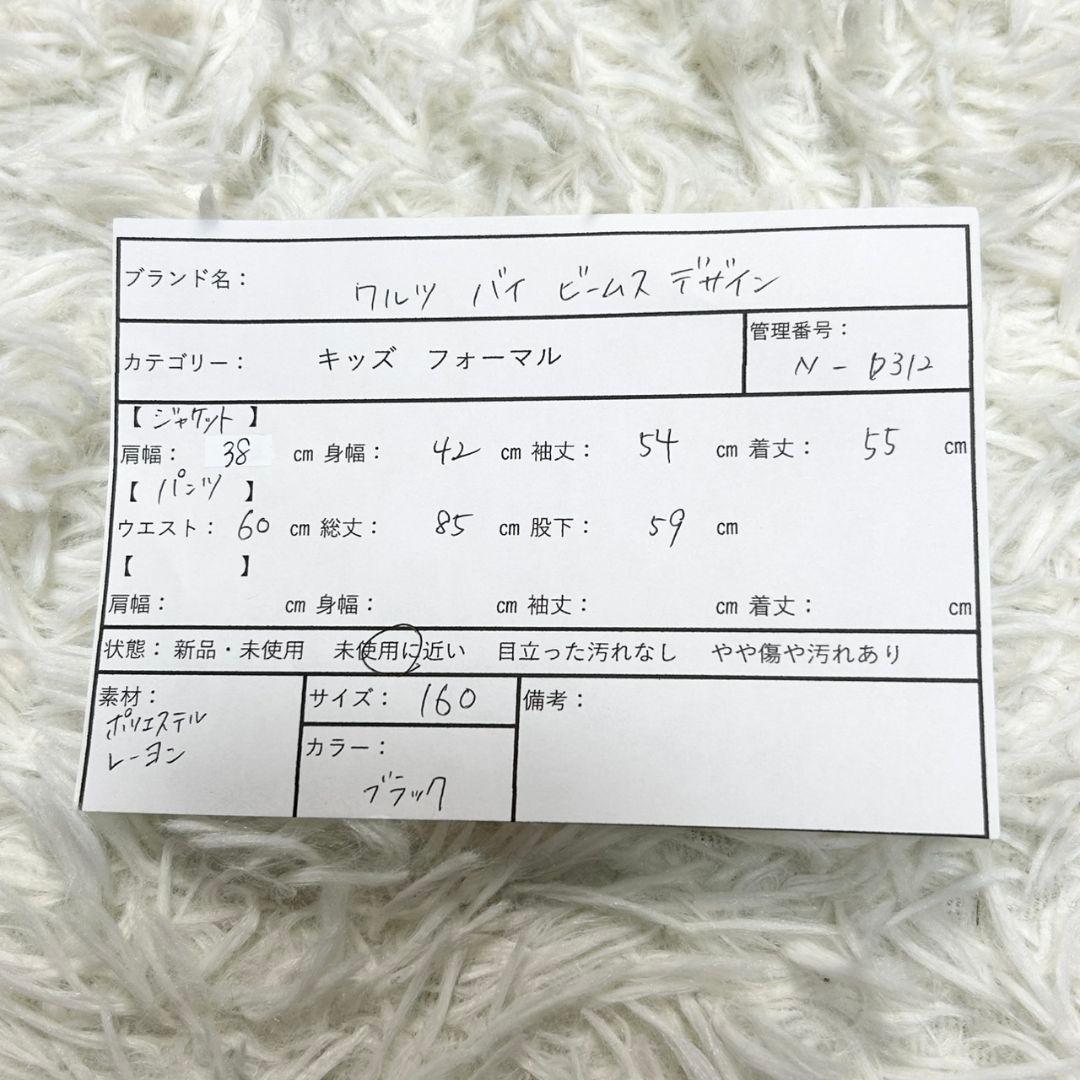 ブランド名： ワルツ バイ ビームス デザイン
カテゴリー： キッズ フォーマル
管理番号：
N - D312
【 ジャケット 】
肩幅： 38 cm 身幅： 42 cm 袖丈： 54 cm 着丈： 55 cm
【 パンツ 】
ウエスト： 60 cm 総丈： 85 cm 股下： 59 cm
【 】
肩幅： cm 身幅： cm 袖丈： cm 着丈： cm
状態：新品・未使用 未使用に近い 目立った汚れなし やや傷や汚れあり
素材：
ポリエステル
レーヨン
サイズ： 160
カラー：
ブラック
備考：